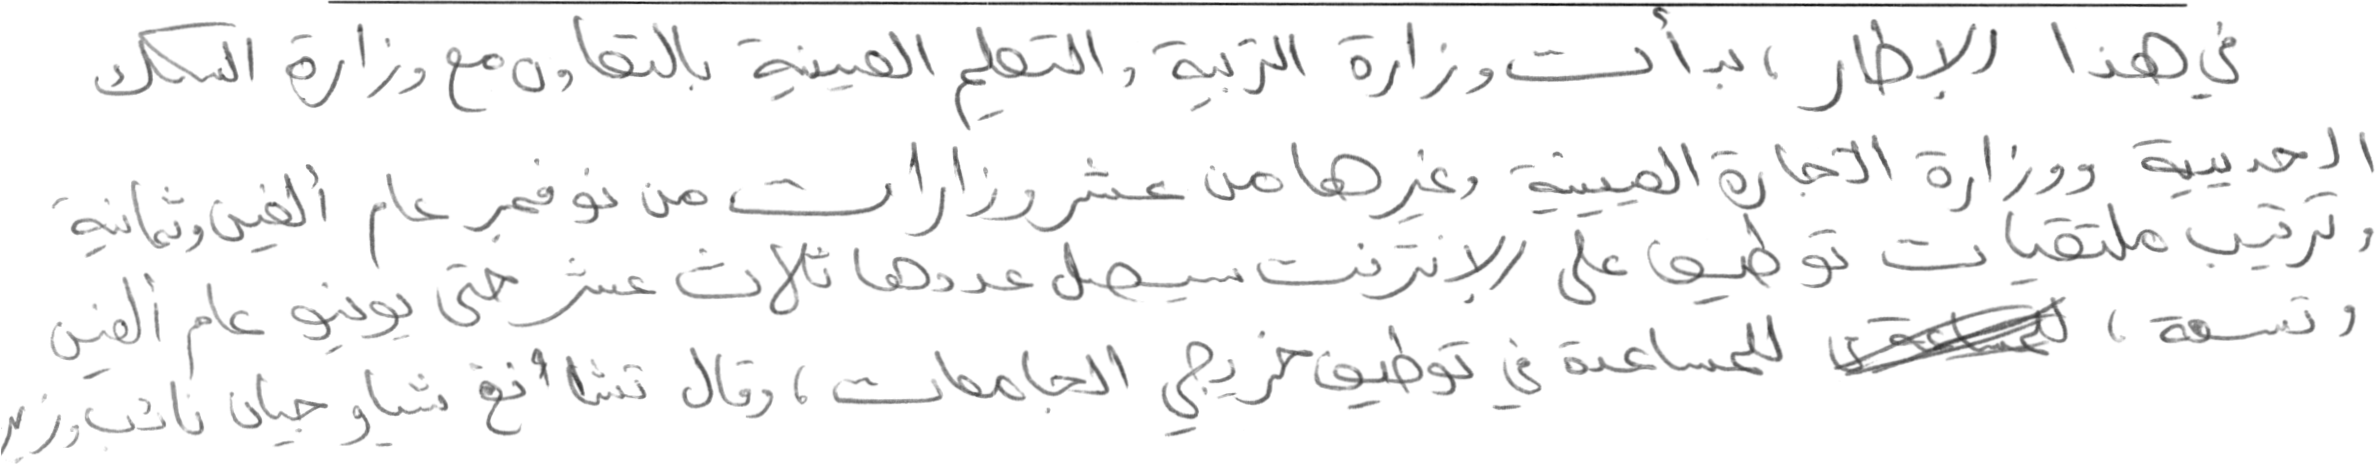 في هذا الإطار ، بدأت وزارة التربية والتعليم الصينية بالتعاون مع وزارة السكك
الحديدية ووزارة التجارة الصينية وغيرها من عشر وزارات من نوفمبر عام ألفين وثمانية
وترتيب ملتقيات توظيف على الإنترنت سيصل عددها ثلاث عشر حتى يونيو عام ألفين
وتسعة ، للمساعدة في توظيف خريجي الجامعات ، وقال تشاأنغ شياو جيان نائب وزير